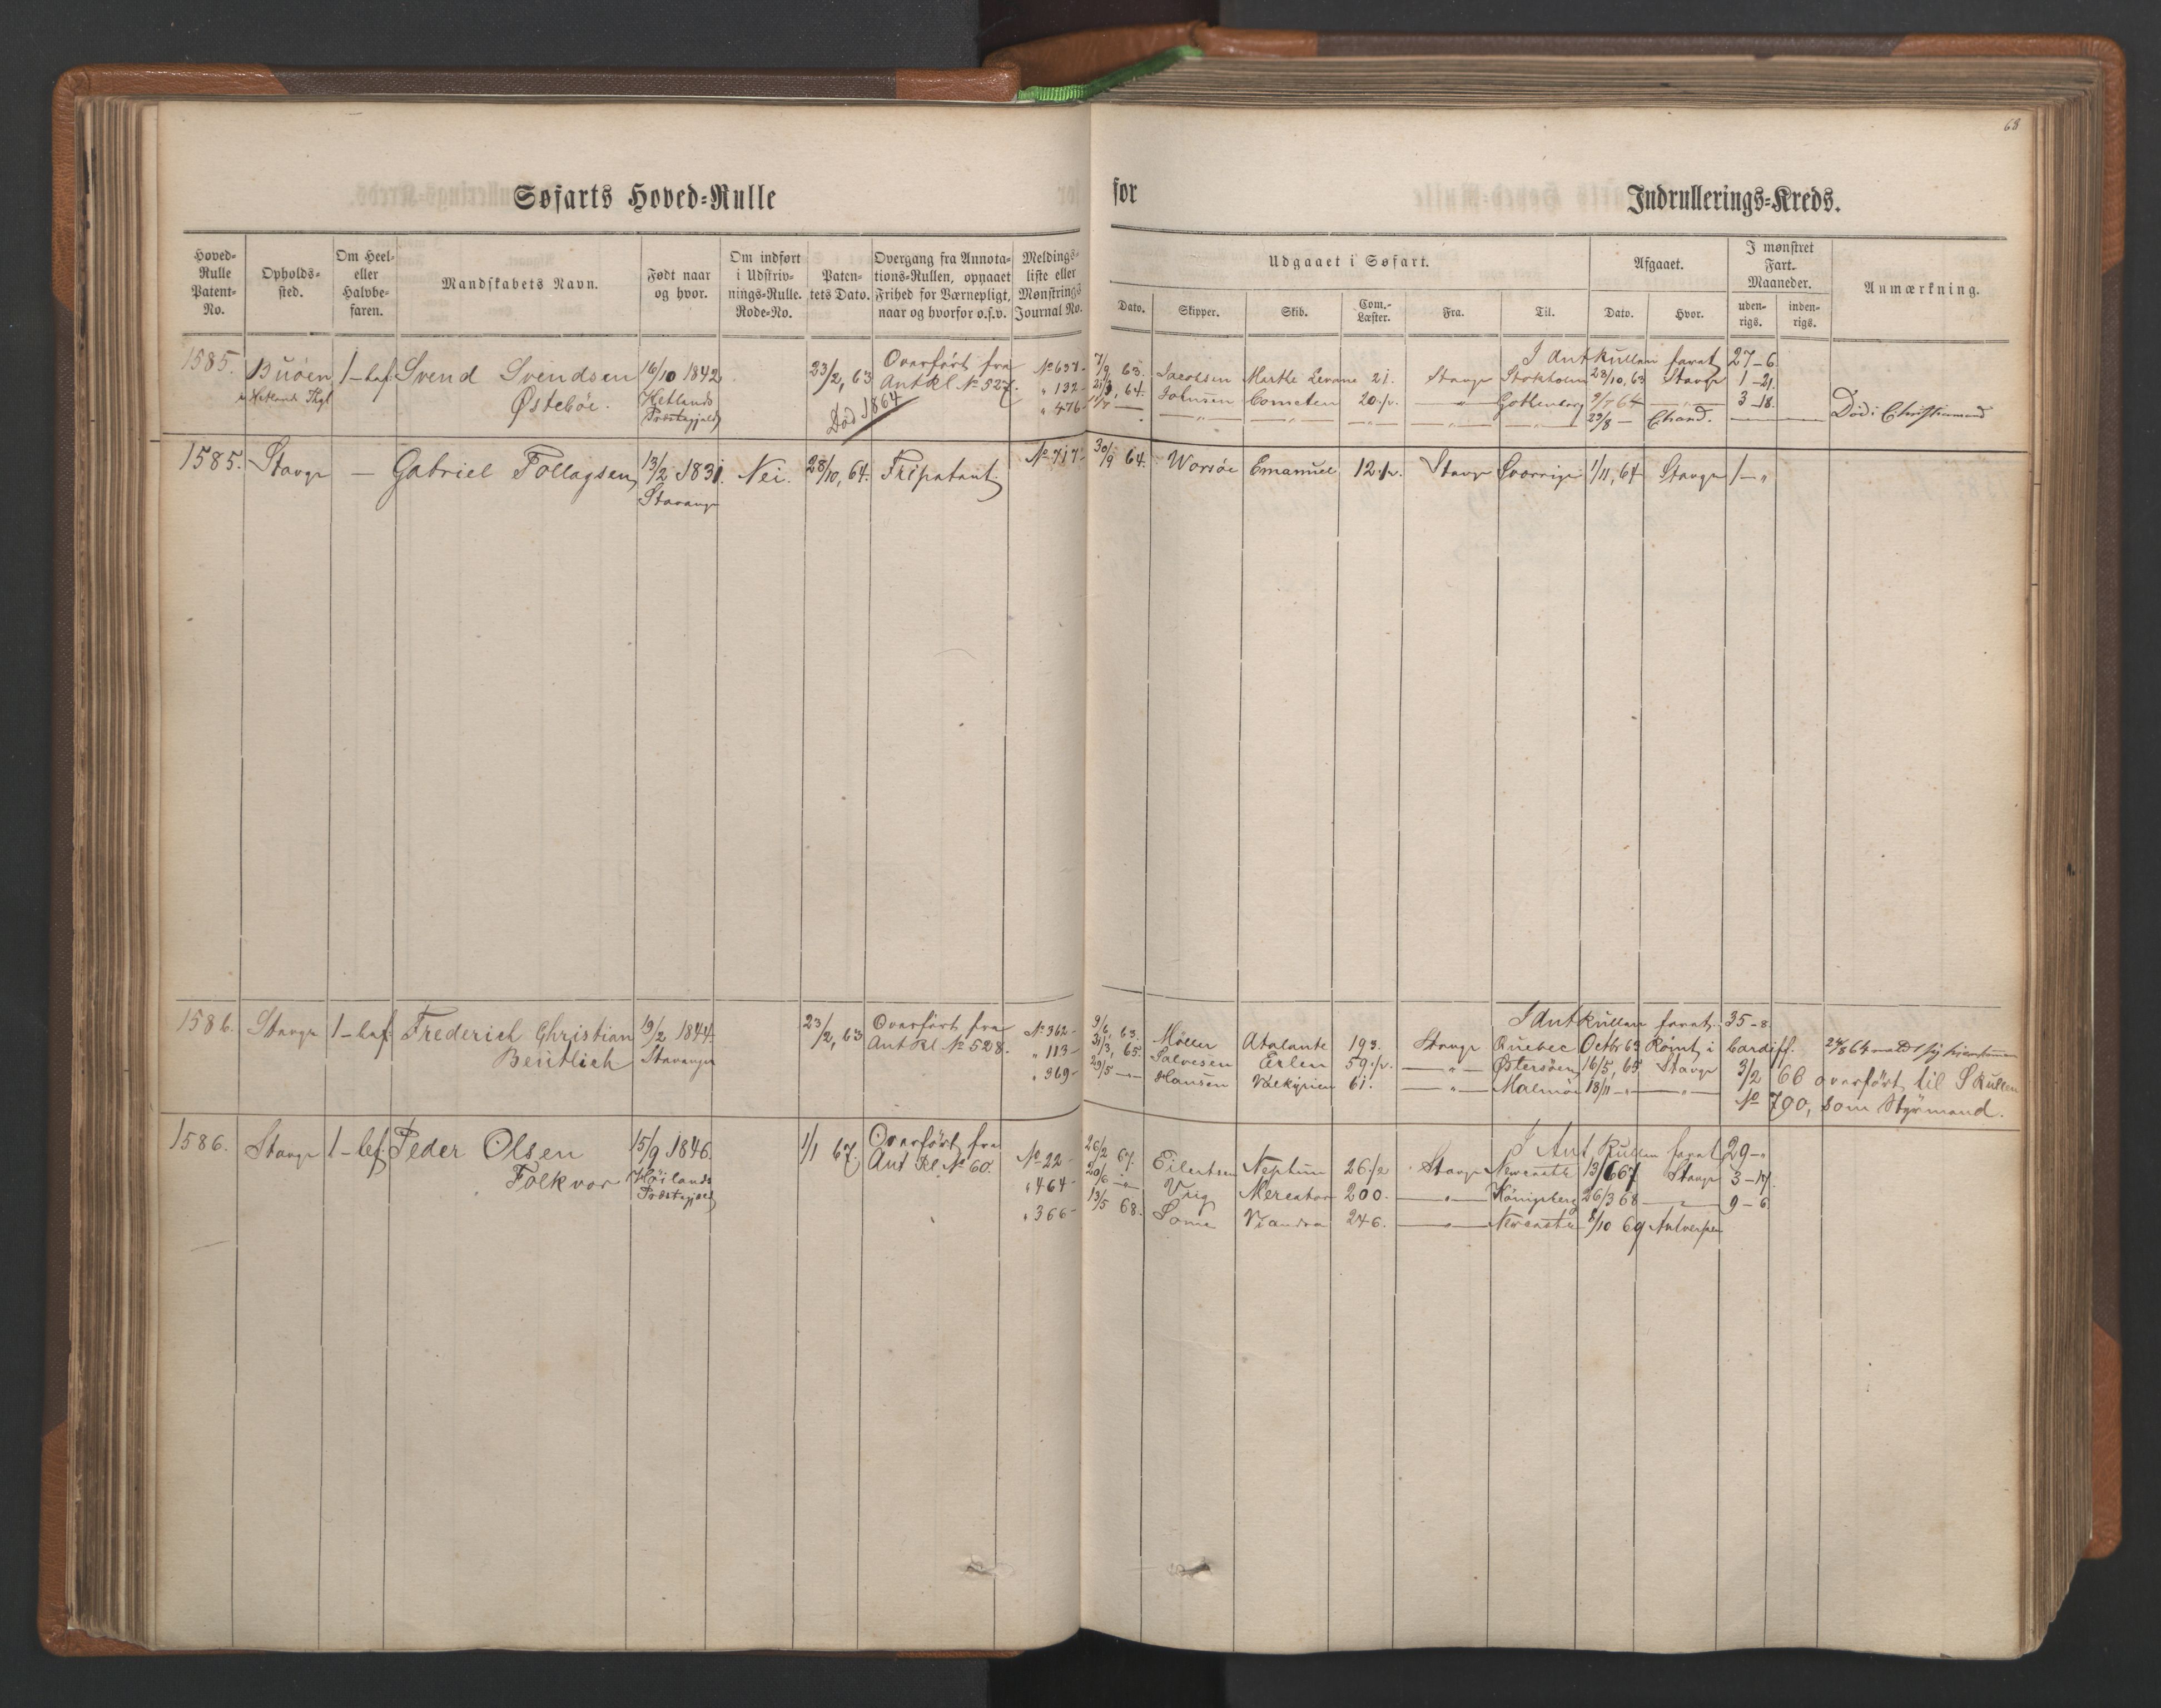 68
Søfarts Hoved-Rulle for Indrullerings-Kreds.
Hoved-Rulle Patent-No. Opholds-sted. Om Heel- eller Halvbe-faren. Mandskabets Navn. Født naar og hvor. Om indført i Udskriv-nings-Rulle. Rode-No. Paten-tets Dato. Overgang fra Annota-tions-Rullen, opnaaet Frihed for Værnepligt, naar og hvorfor o.s.v. Meldings-liste eller Mønstrings Journal No.
Udgaaet i Søfart. Afgaaet. I mønstret Fart. Maaneder. Anmærkning.
Dato. Skipper. Skib. Com.-Læster. Fra. Til. Dato. Hvor. uden-rigs. inden-rigs.
1585. Buøen 1-bef. Svend Svendsen 16/10 1842 23/2, 63 Overført fra No 637-
Hetlands Østebøe. Hetlands Ant Rl. No 527. " 132-
Præstegjeld Død 1864 " 476-
I Ant Rullen faret 27-6.
7/9 63. Jacobsen Marthe 21. Stavgr Stokholm 23/10, 63 Stavgr 1-21.
64. Johnsen Cometen 20 1/2. -"- Gothenborg 9/7 64 -"- 3-18.
11/7 — -"- -"- -"- -"- -"- 29/8 — Chsand. — Død i Christiansand
1585. Stavgr — Gabriel Follagsen 13/2 1831. Nei. 28/10, 64. Fripatent. No 717-
Stavanger
30/9 64. Worsöe Emanuel 12 1/2. Stavgr Sverrige 1/11, 64 Stavgr 1-"
1586. Stavgr 1-bef. Frederich Christian 19/2 1844. 23/2, 63 Overført fra No 362-
Bentlich Stavanger Ant Rl No 528. " 113-
" 369-
I Ant Rullen faret. 35-8
9/6, 63. Möller Atalante 193. Stavgr Quebec Octbr 63 Rømt i Cardiff.
31/3, 65. Salvesen Erlen 59 1/2. -"- Østersøen 16/5, 65 Stavgr 3/2 66 overført til S Rullen
29/5 -"- Hansen Valkyrien 61. -"- Malmö 18/11 -"- -"- No 790, som Styrmand.
1586. Stavgr 1-bef. Peder Olsen 15/9 1846. 1/1 67. Overført fra No 22-
Folkvor Höilands Ant Rl No 60. " 464-
Præstegjeld " 366-
I Ant Rullen faret 29-"
26/2 67. Eilertsen Neptun 26 1/2 Stavgr Newcastle 13/6 67 Stavgr 3-17.
20/6 -"- Vrig Mercator 200. -"- Königsberg 26/3 68 -"- 9-6
13/5 68. Some 246. -"- Newcastle 8/10 69 Antverpen